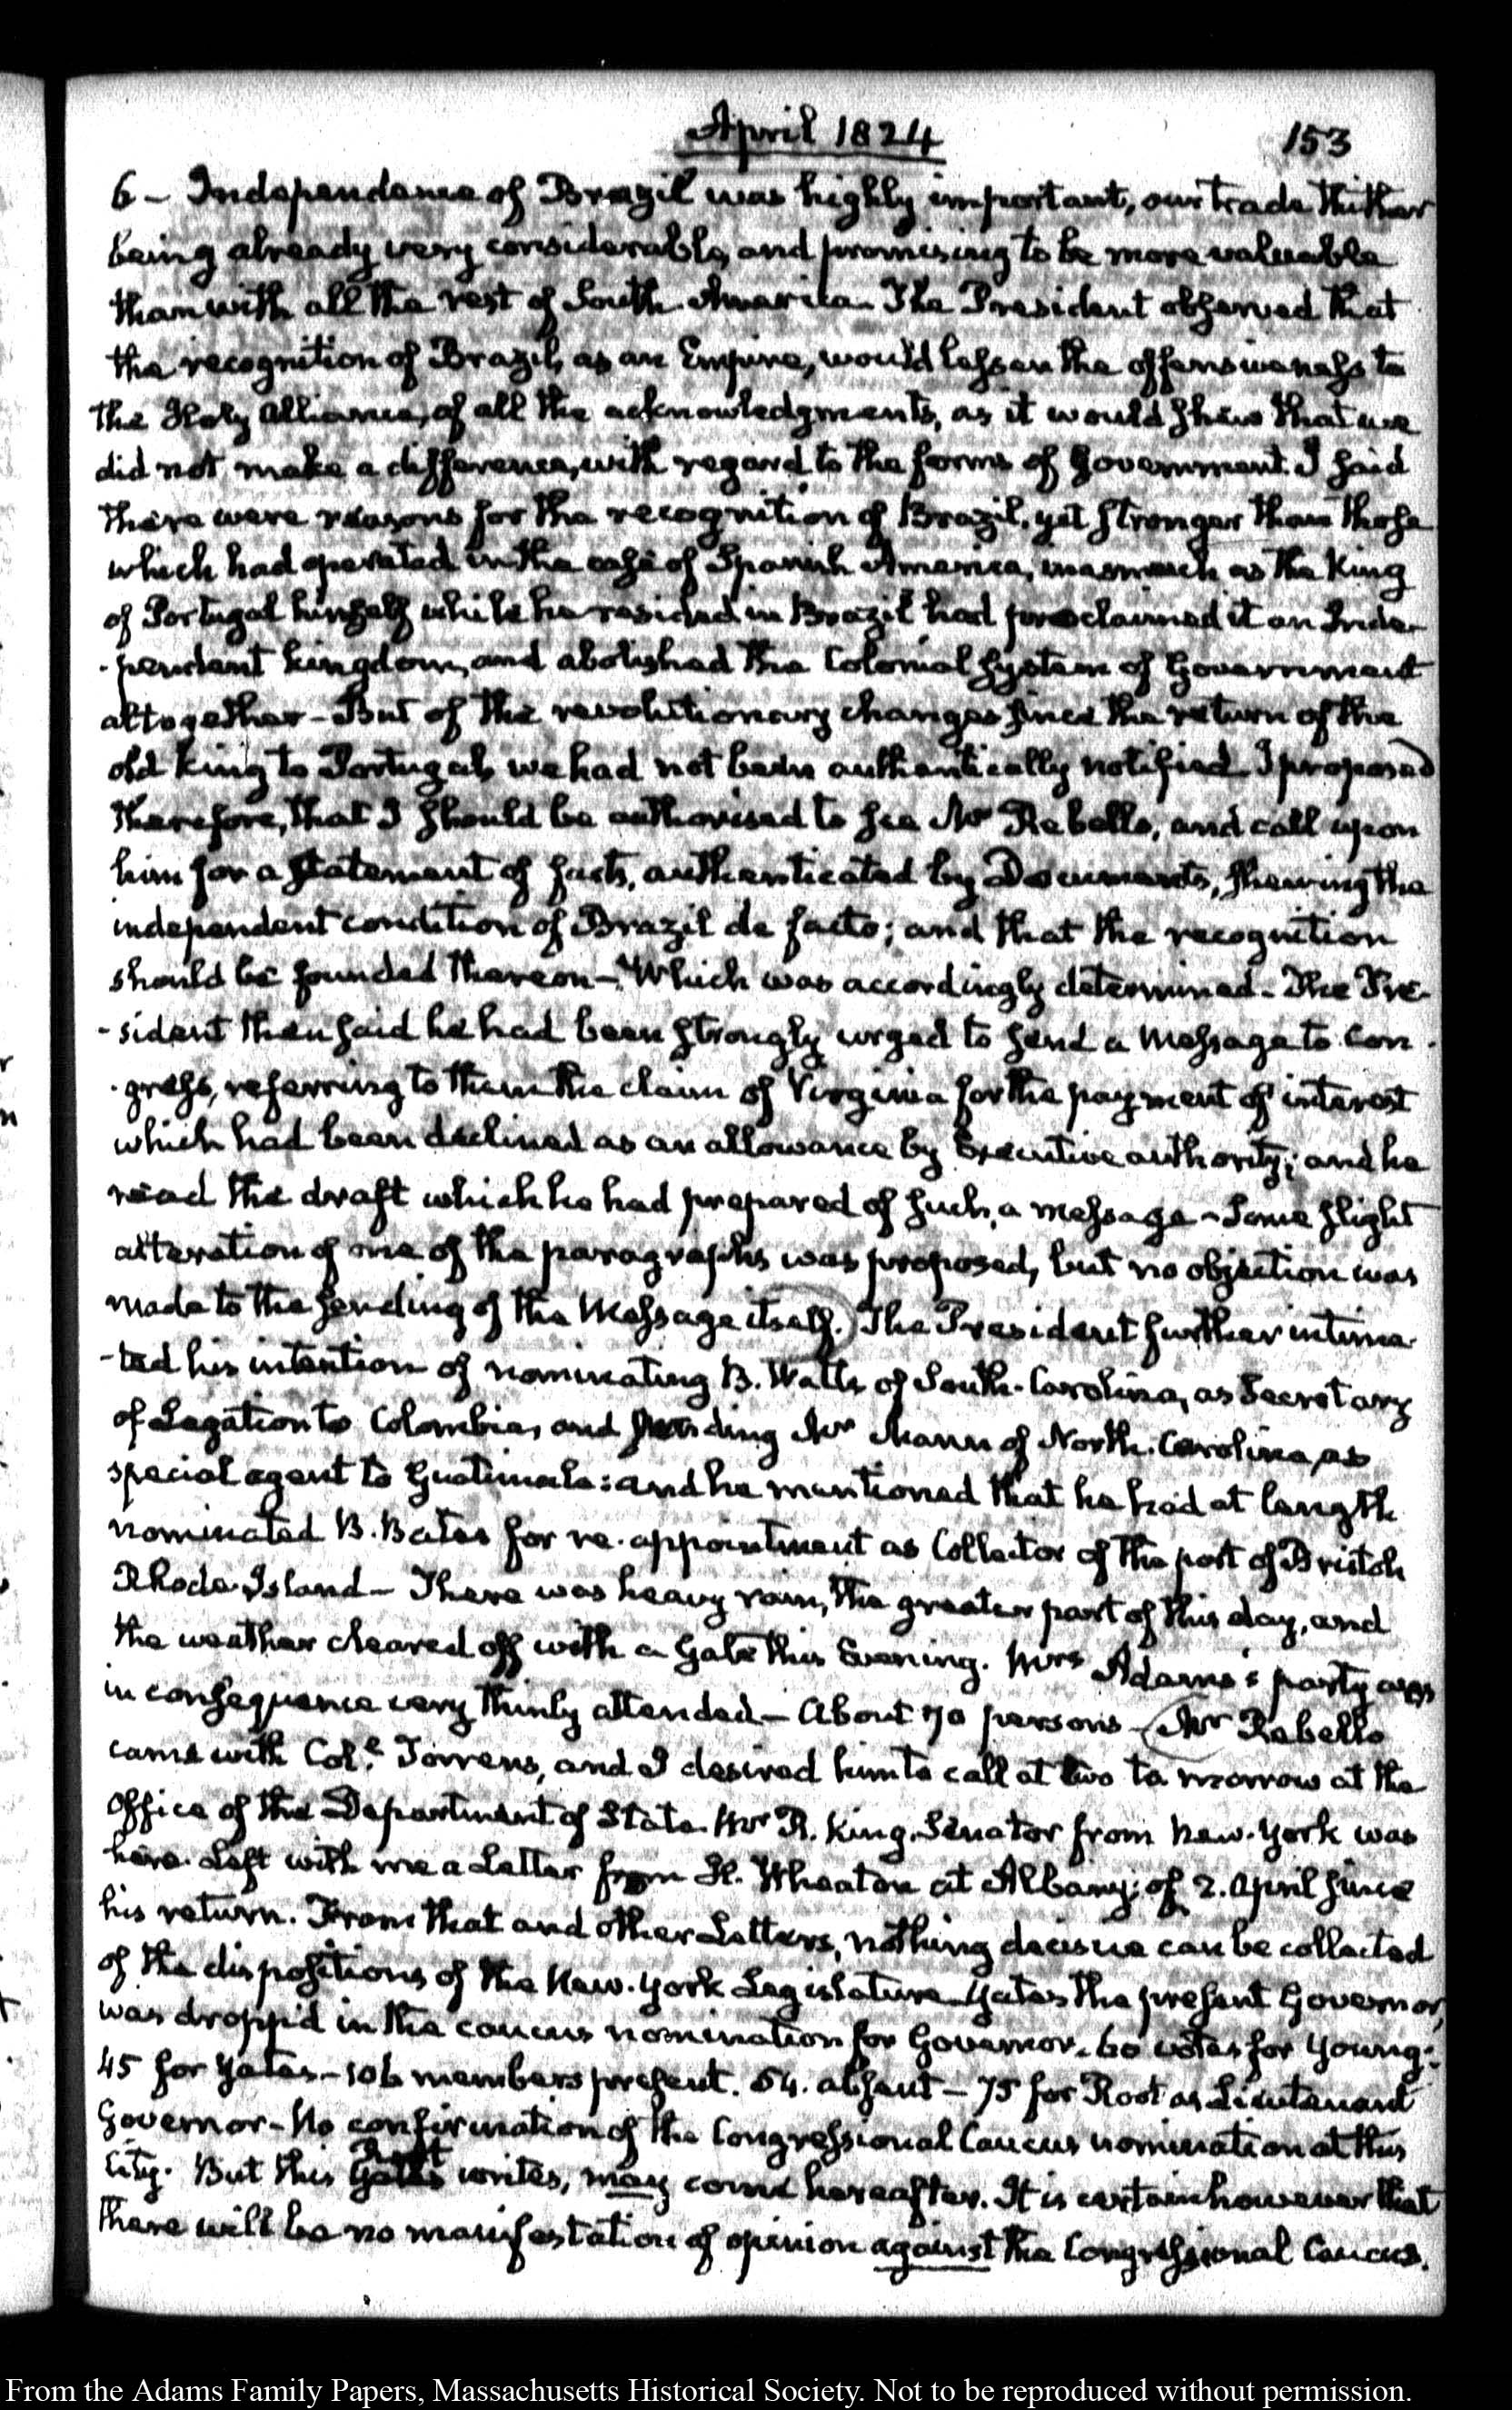 April 1824
153
6 - Independence of Brazil was highly important, our trade thither
being already very considerable, and promising to be more valuable
than with all the rest of South America - The President observed that
the recognition of Brazil, as an Empire, would lessen the offensiveness to
the Holy Alliance, of all the acknowledgments, as it would shew that we
did not make a difference, with regard to the forms of Government. I said
there were reasons for the recognition of Brazil, yet stronger than those
which had operated in the case of Spanish America, inasmuch as the King
of Portugal himself while he resided in Brazil had proclaimed it an Inde-
-pendent kingdom, and abolished the Colonial system of Government
altogether - But of the revolutionary changes since the return of the
old king to Portugal, we had not been authentically notified - I proposed
therefore, that I should be authorised to see Mr Rebello, and call upon
him for a statement of facts, authenticated by Documents, shewing the
independent condition of Brazil de facto; and that the recognition
should be founded thereon - Which was accordingly determined - The Pre-
-sident then said he had been strongly urged to send a Message to Con-
-gress, referring to them the claim of Virginia for the payment of interest
which had been declined as an allowance by Executive authority; and he
read the draft which he had prepared of such, a message - Some slight
alteration of one of the paragraphs was proposed, but no objection was
made to the sending of the Message itself. The President further intima-
-ted his intention of nominating B. Watts of South-Carolina, as Secretary
of Legation to Colombia, and sending Mr Mann of North-Carolina, as
special agent to Guatimala: and he mentioned that he had at length
nominated B. Bates for re-appointment as Collector of the port of Bristol
Rhode-Island - There was heavy rain, the greater part of this day, and
the weather cleared off with a Gale this Evening. Mrs Adams's party was
in consequence very thinly attended - About 70 persons - Mr Rebello
came with Coll. Torrens, and I desired him to call at two to morrow at the
Office of the Department of State. Mr R. King, Senator from New-York was
here. Left with me a Letter from H. Wheaton at Albany; of 2. April since
his return. From that and other Letters, nothing decisive can be collected
of the dispositions of the New-York Legislature - Yates the present Governor,
was dropp'd in the caucus nomination for Governor - 60 votes for Young:
45 for Yates - 106 members present. 54. absent - 75 for Root as Lieutenant
Governor - No confirmation of the Congressional Caucus nomination at this
Root
City. But this Yates writes, may come hereafter. It is certain however that
there will be no manifestation of opinion against the Congressional Caucus.
From the Adams Family Papers, Massachusetts Historical Society. Not to be reproduced without permission.